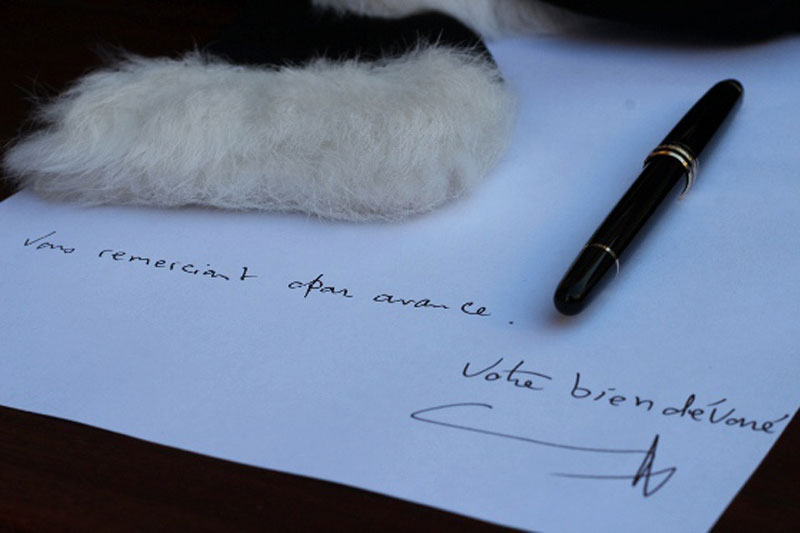 Vous remerciant par avance.
Votre bien dévoué